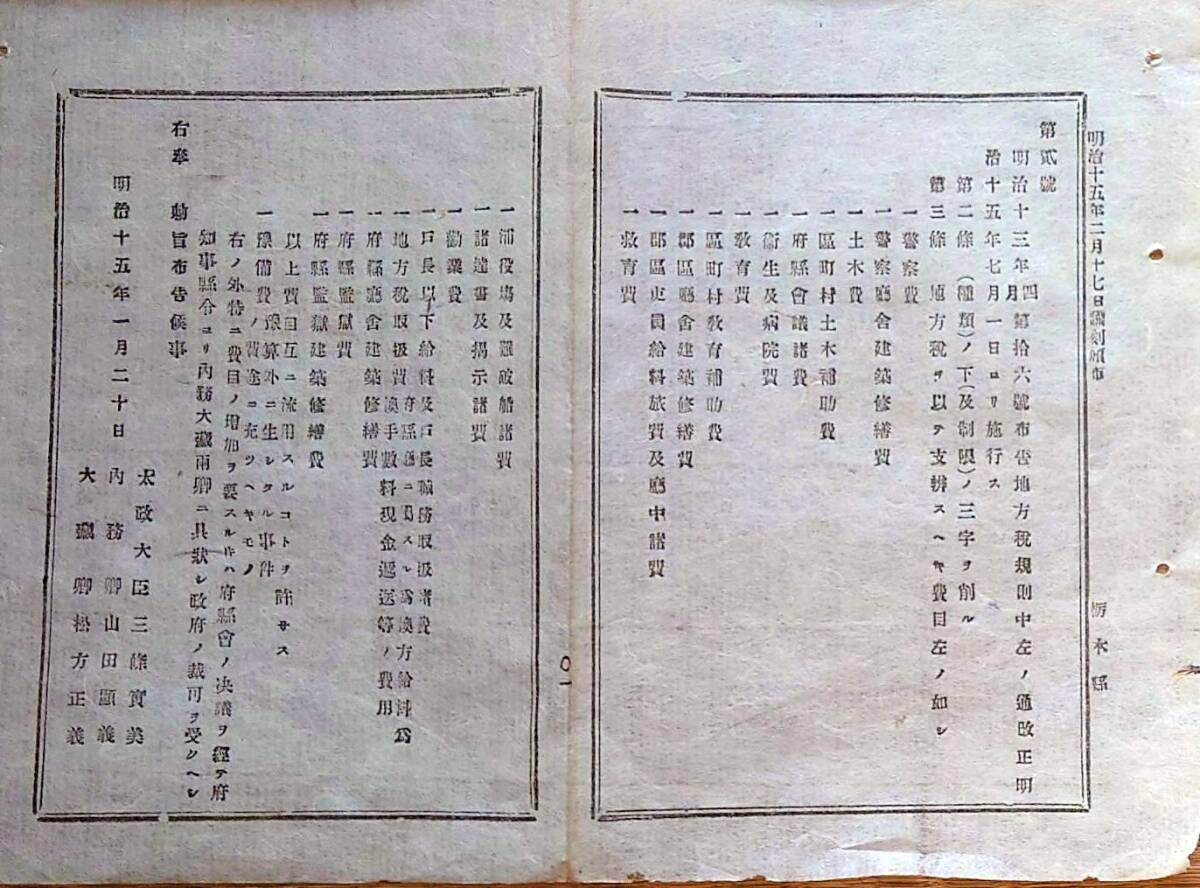 明治十五年二月十七日飜刻頒布　栃木縣
第貳號
明治十三年四月第拾六號布吿地方稅規則中左ノ通改正明
治十五年七月一日ヨリ施行ス
第二條　（種類）ノ下（及制限）ノ三字ヲ削ル
第三條　地方稅ヲ以テ支辨スヘキ費目左ノ如シ
一警察費
一警察廳舍建築修繕費
一土木費
一區町村土木補助費
一府縣會議諸費
一衛生及病院費
一敎育費
一區町村敎育補助費
一郡區廳舍建築修繕費
一郡區吏員給料旅費及廳中諸費
一救育費
〇一
一浦役塲及難破船諸費
一諸達書及揭示諸費
一勸業費
一戶長以下給料及戶長職務取扱諸費
一地方稅取扱費府縣廳ニ屬スル爲換方給料爲
換手數料現金遞送等ノ費用
一府縣廳舍建築修繕費
一府縣監獄費
一府縣監獄建築修繕費
以上費目互ニ流用スルコトヲ許サス
一豫備費豫算外ニ生シタル事件
ノ費途ニ充ツヘキモノ
右ノ外特ニ費目ノ增加ヲ要スル片ハ府縣會ノ决議ヲ經テ府
知事縣令ヨリ內務大藏兩卿ニ具狀シ政府ノ裁可ヲ受クヘシ
右奉　勅旨布吿候事
明治十五年一月二十日
太政大臣三條實美
內務卿山田顯義
大藏卿松方正義